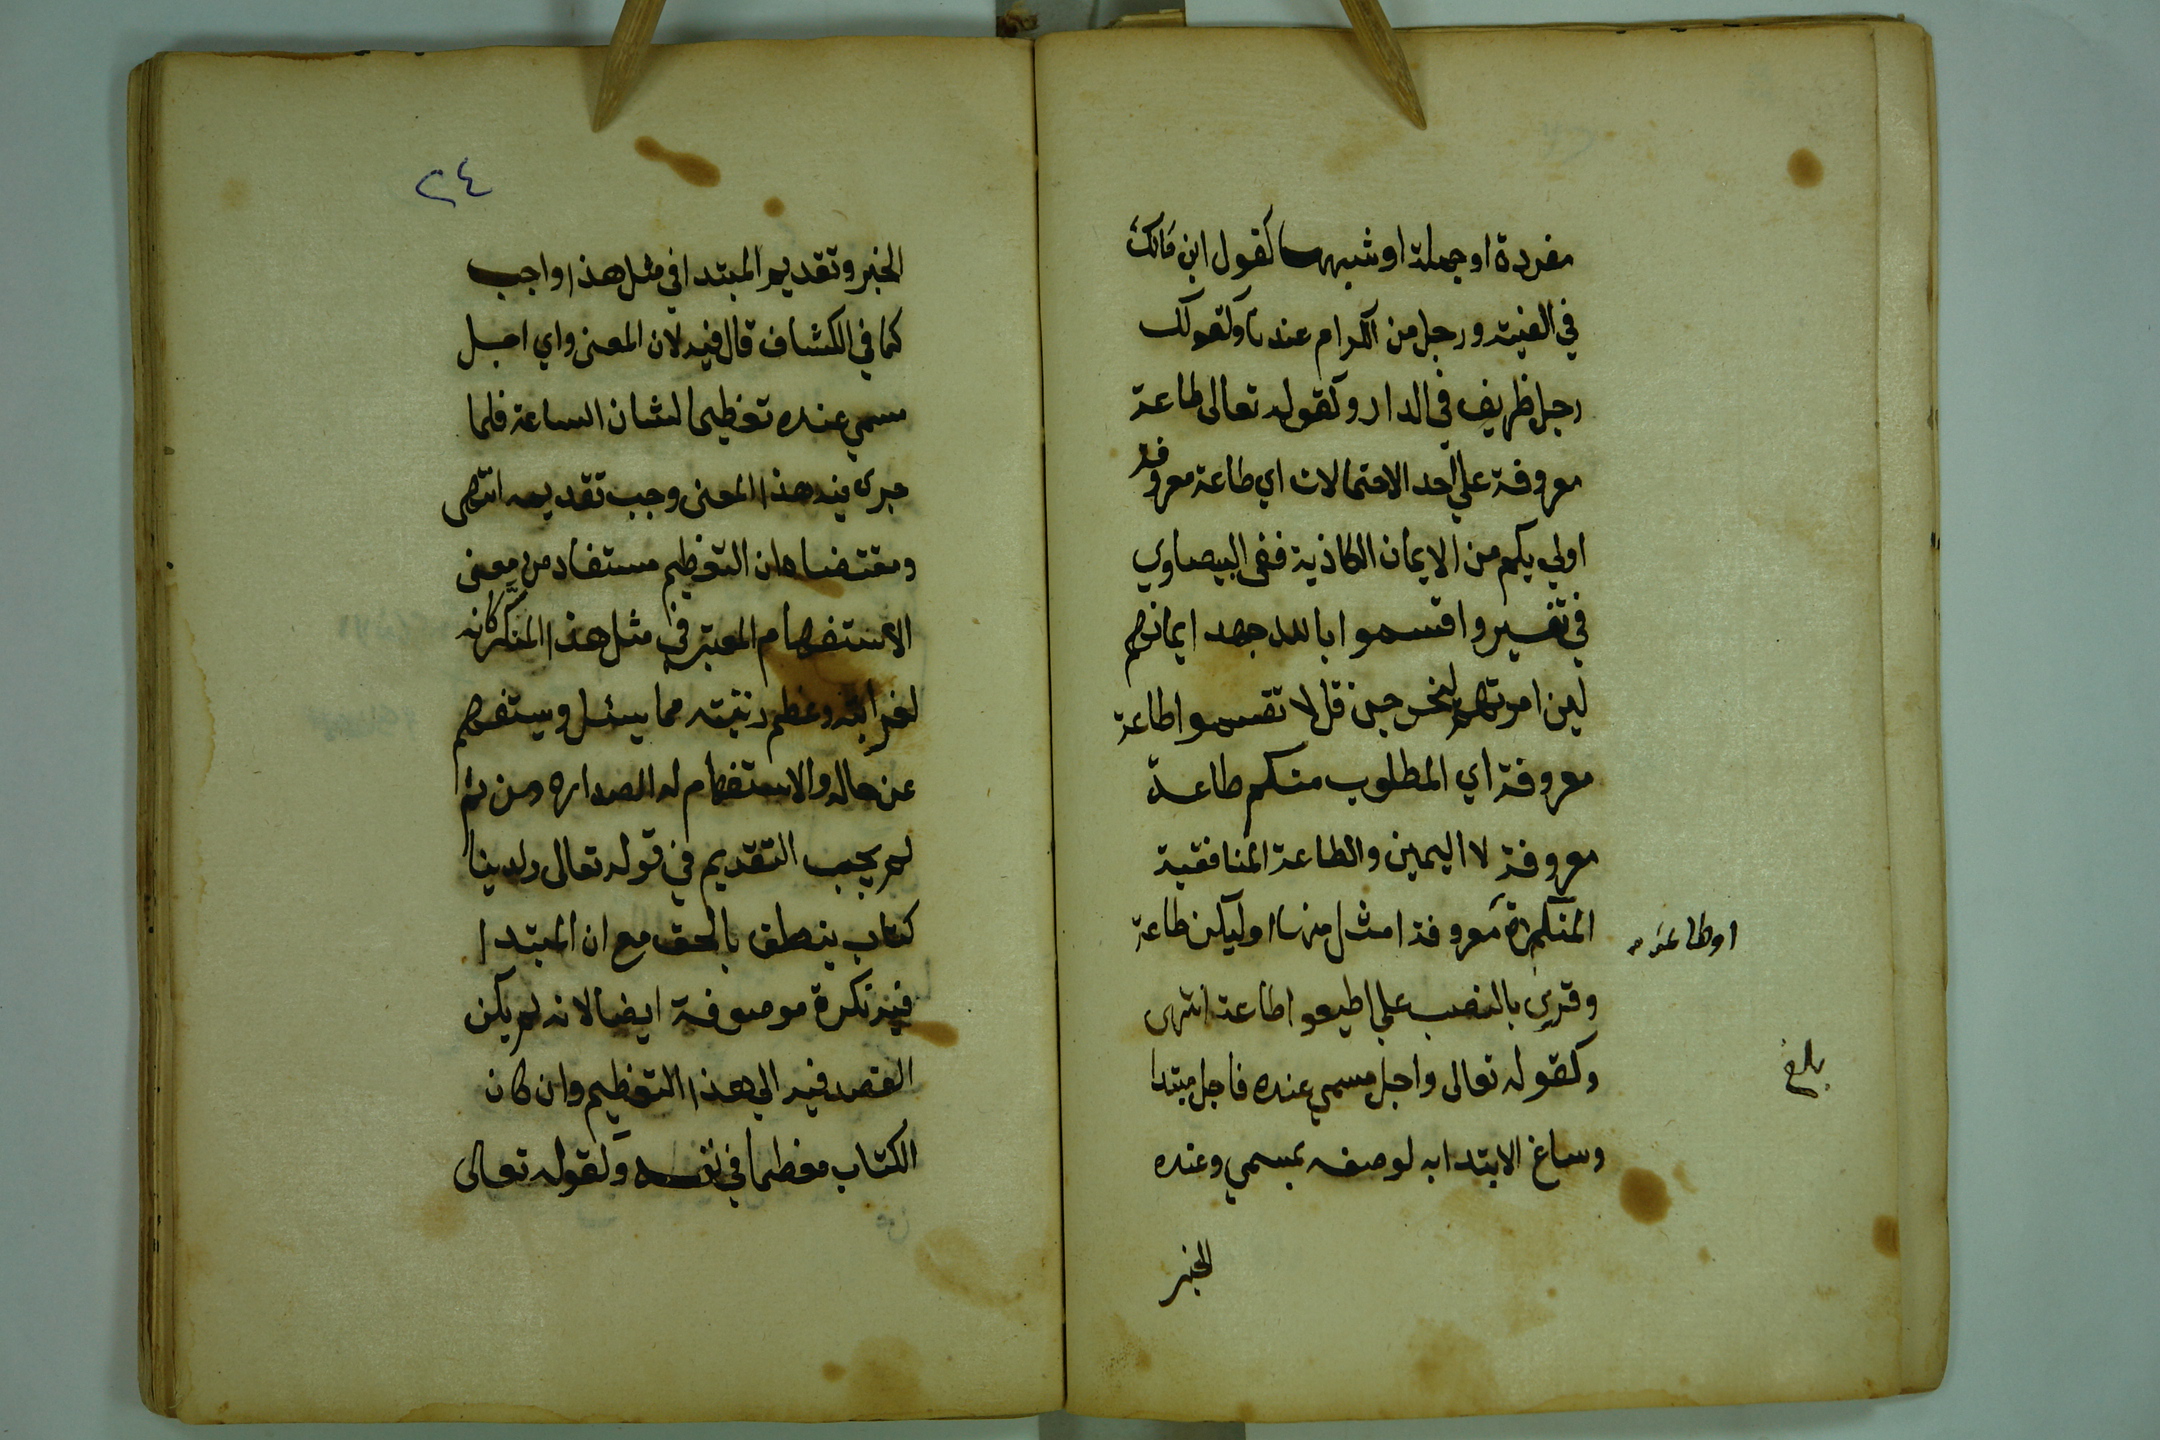 مفردة او جملة او شبهها كقول ابن مالك
في الفيته ورجل من الكرام عندنا وكقولك
رجل ظريف في الدار وكقوله تعالى طاعة
معروفة علي احد الاحتمالات اي طاعة معروفة
اولي بكم من الايمان الكاذبة ففى البيضاوي
في تفسير واقسموا بالله جهد ايمانهم
لين امرتهم ليخرجن قل لا تقسموا طاعة
معروفة اي المطلوب منكم طاعة
معروفة لا اليمين والطاعة المنافقية
المنكرة معروفة امثل منها او ليكن طاعة
او طاعة
وقري بالنصب علي اطيعوا طاعة انتهى
وكقوله تعالى واجل مسمي عنده فاجل مبتدا
بلغ
وساغ الابتدا به لوصفه بمسمي وعنده
الخبر
٢٤
الخبر وتقديم المبتدا في مثل هذا واجب
كما في الكشاف قال فيه لان المعنى واي اجل
مسمي عنده تعظيما لشان الساعة فلما
جرى فيه هذا المعنى وجب تقديمه انتهى
ومقتضاه ان التعظيم مستفاد من معنى
الاستفهام المعتبر في مثل هذا المنكر كانه
لغرابته وعظم رتبته مما يسئل ويستفهم
عن حاله والاستفهام له الصداره ومن ثم
لم يجب التقديم في قوله تعالى ولدينا
كتاب ينطق بالحق مع ان المبتدا
فيه نكرة موصوفة ايضا لانه لم يكن
القصد فيه الي هذا التعظيم وان كان
الكتاب معظما في نفسه وكقوله تعالى